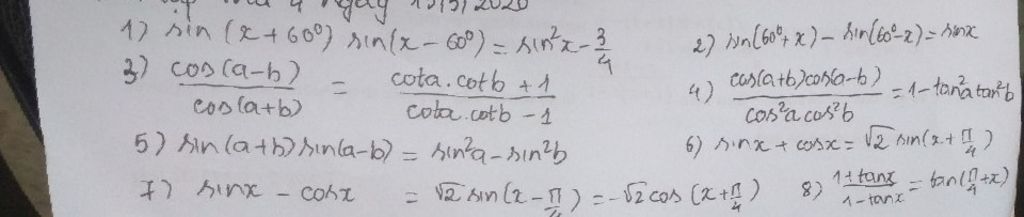 4 ngày 15/5/2020
1) sin (x + 60°) sin(x - 60°) = sin²x - 3/4 2) sin(60° + x) - sin(60° - x) = sinx
3) cos(a-b)/cos(a+b) = (cota.cotb + 1)/(cota.cotb - 1) 4) cos(a+b)cos(a-b)/cos²a cos²b = 1 - tan²a tan²b
5) sin(a+b) sin(a-b) = sin²a - sin²b 6) sinx + cosx = √2 sin(x + π/4)
7) sinx - cosx = √2 sin(x - π/4) = -√2 cos (x + π/4) 8) (1 + tanx)/(1 - tanx) = tan(π/4 + x)